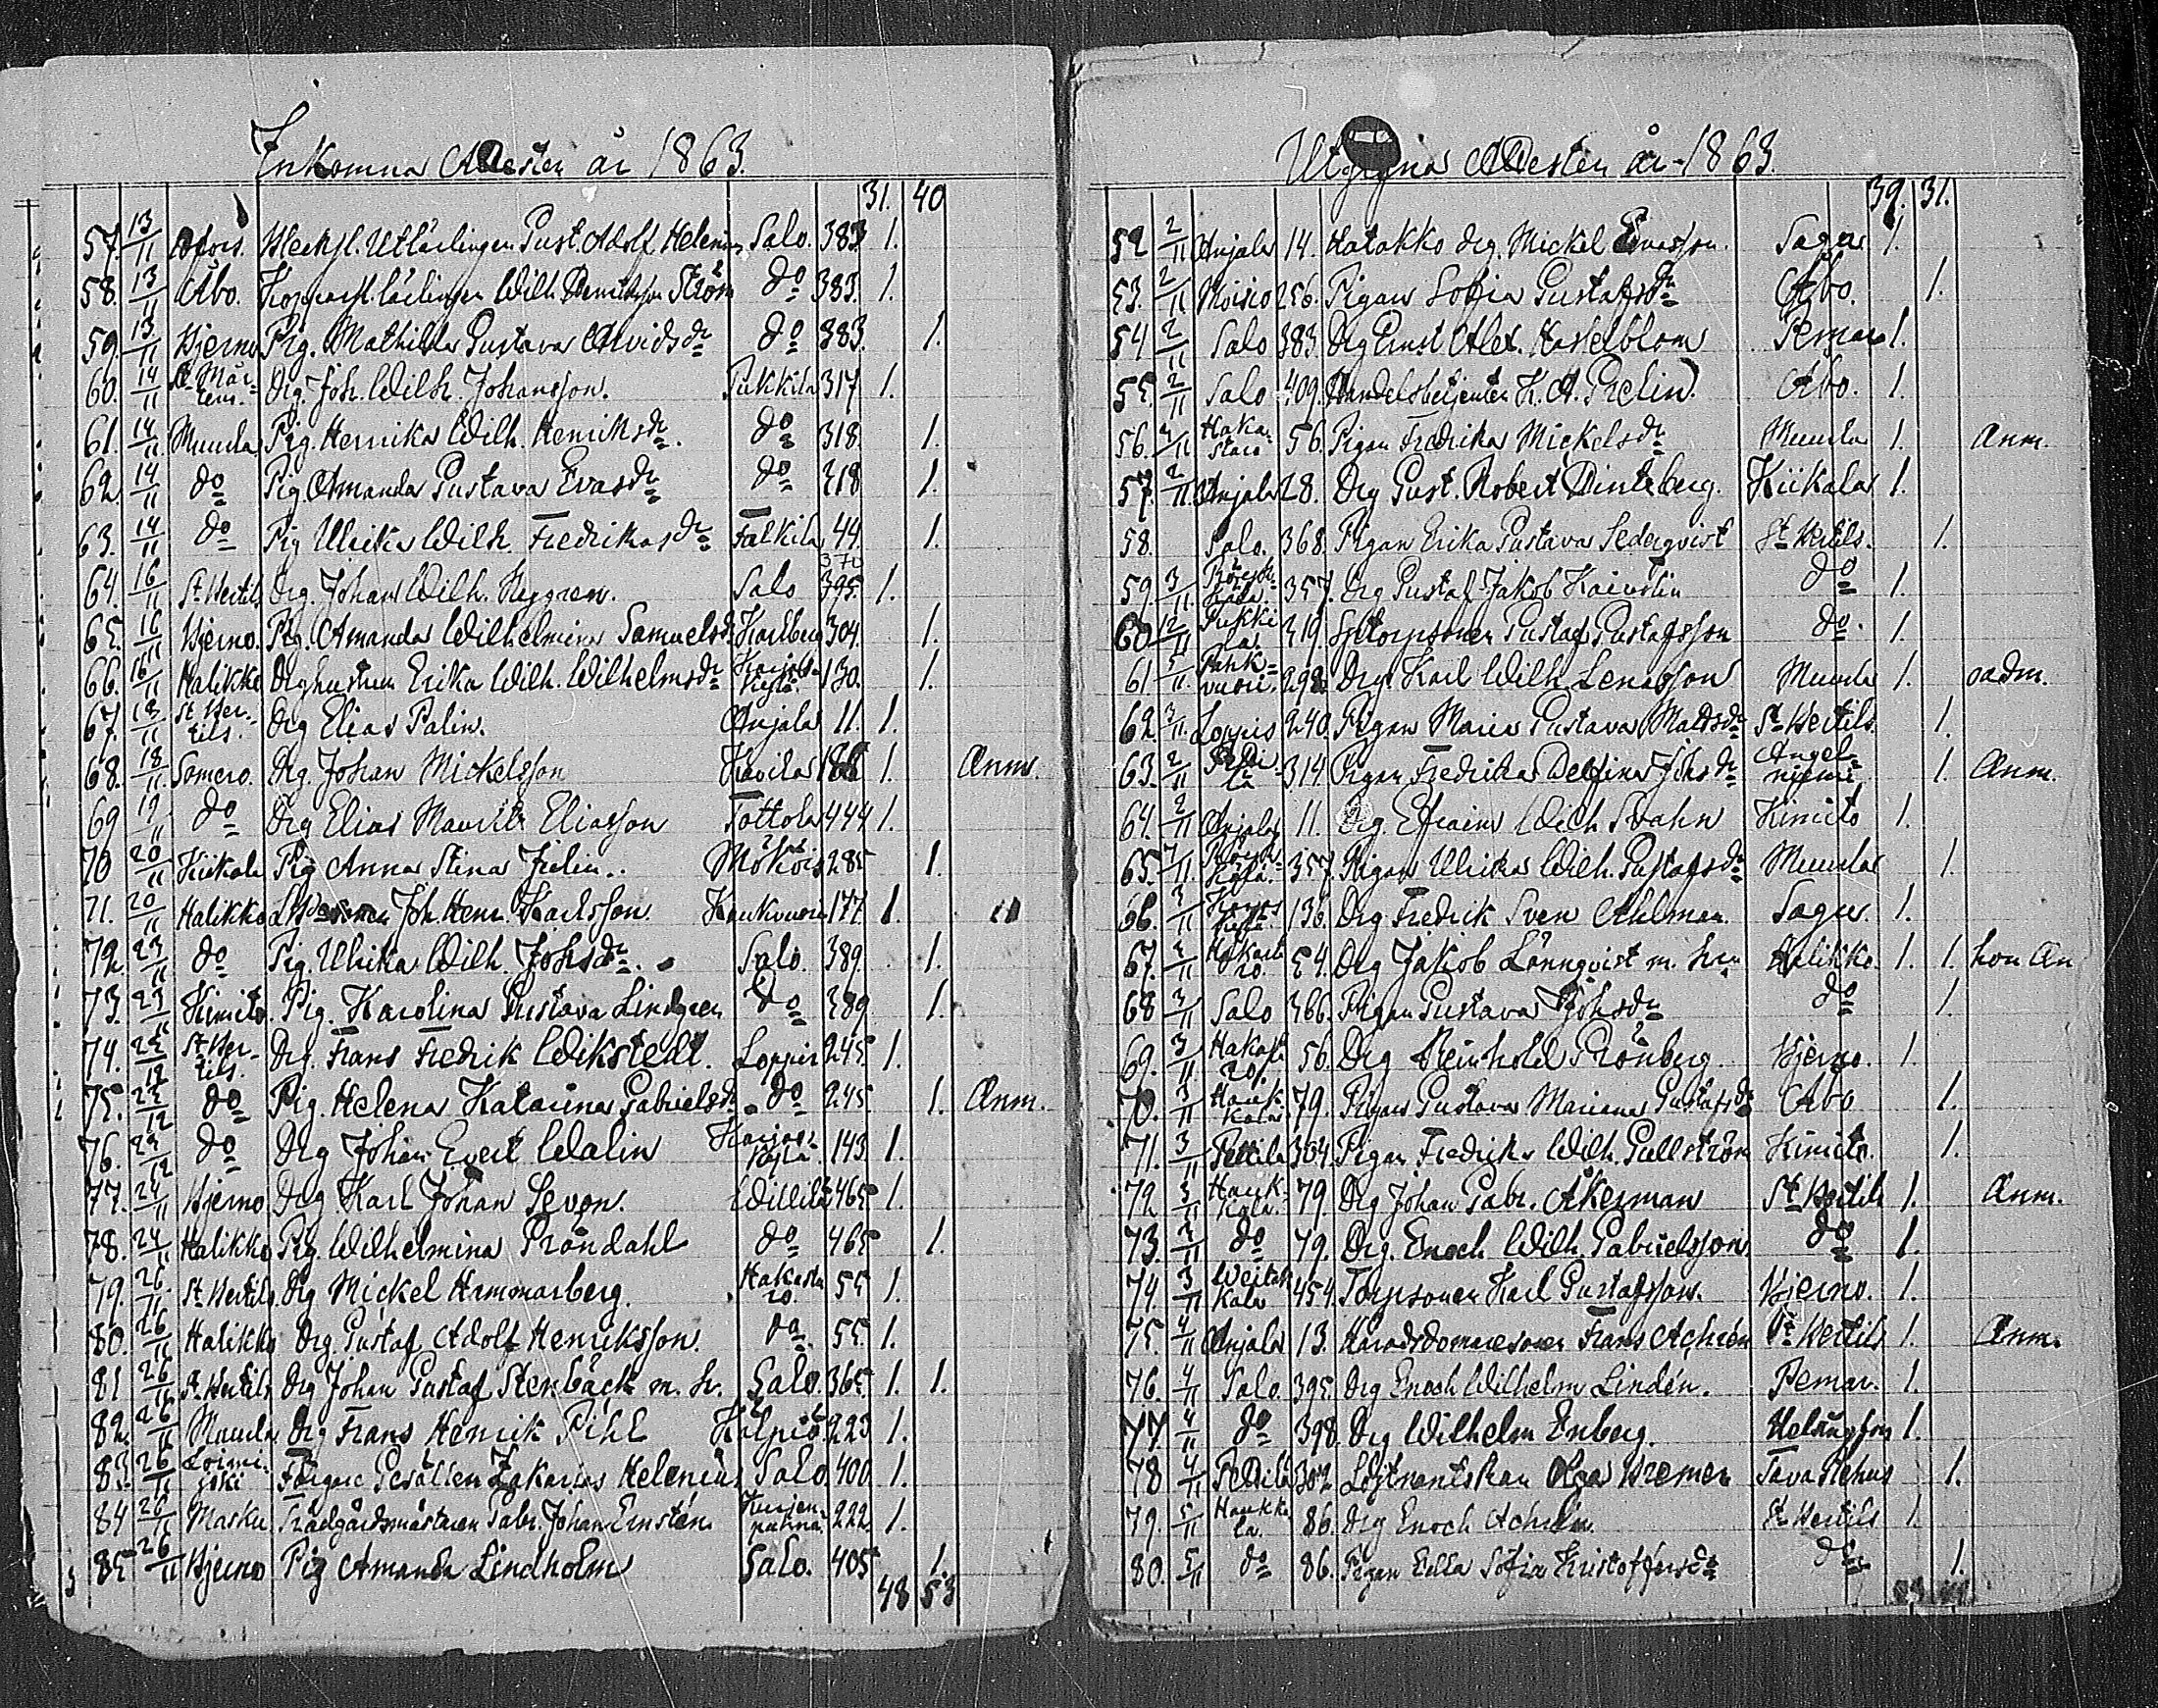 Inkomna Attester år 1863.
31. 40
57. 13/11 Hfors. Utlärlingen Gust. Adolf Helenius Salo. 383. 1.
58. 13/11 Åbo. Kopparsl. lärlingen Wilh. Henriksson Ström do 383. 1.
59. 13/11 Bjerno Pig. Mathilda Gustava Arvidsdr do 383. 1.
60. 14/11 St Mårtens. Drg. Joh. Wilh. Johansson. Pukkila 317 1.
61. 14/11 Muurla Pig. Henrika Wilh. Henriksdr. do 318. 1.
62. 14/11 do Pig Amanda Gustava Evasdr do 318 1.
63. 14/11 do Pig Ulrika Wilh. Fredriksdr Falkila 44. 1.
370
64. 16/11 St Bertils Drg. Johan Wilh. Nygren. Salo 395. 1.
65. 16/11 Bjerno. Pig. Amanda Wilhelmina Samuelsdr Karlberg 304. 1.
66. 16/11 Halikko Drghustrun Erika Wilh. Wilhelmsdr Karjaskylä. 130. 1.
67. 18/11 St Bertils. Drg Elias Palin. Anjala 11. 1.
68. 18/11 Somero. Drg. Johan Mickelsson Kavila 166 1. Anm.
69 19/11 do Drg Elias Maurits Eliasson Tottola 444 1.
70 20/11 Kiikala Pig Anna Stina Julin.. Mököis 285 1.
71. 20/11 Halikko Joh. Henr. Karlsson. Kaukvuori 177. 1.
72. 23/11 do Pig. Ulrika Wilh. Johsdr. Salo. 389. 1.
73. 23/11 Kimito. Pig. Karolina Gustava Lindgren do 389 1.
74. 23/12 St Bertils. Drg. Frans Fredrik Wikstedt. Loppis 245. 1.
75. 23/12 do Pig. Helena Katarina Gabrielsdr. do 245. 1. Anm.
76. 23/12 do Drg Johan Evert Walin Karjaskylä. 143 1.
77. 24/11 Bjerno Drg Karl Johan Sevon. Willilä 465 1.
78. 24/11 Halikko Pig. Wilhelmina Gröndahl do 465 1.
79. 26/11 St Bertils Drg Mickel Hammarberg. Hakastaro. 55 1.
80. 26/11 Halikko Drg. Gustaf Adolf Henriksson. do. 55. 1.
81 26/11 St Bertils Drg Johan Gustaf Stenbäck m. h. Salo. 365. 1. 1.
82. 26/11 Muurla Drg Frans Henrik Pihl Kälpiö. 223 1.
83. 26/11 Loimijoki Färgare Gesällen Zakarias Helenius Salo. 400. 1.
84 26/11 Masku Trädgårdsmästaren Gabr. Johan Ernstén. Kurjenpahna. 222. 1.
85 26/11 Bjerno Pig Amanda Lindholm Salo. 405 1.
48 53
Utgifna Attester år 1863.
39. 31.
52 2/11 Anjala 14. Hatakko drg. Mickel Evasson. Sagu 1.
53. 2/11 Moisio 256. Pigan Sofia Gustafsdr Åbo. 1.
54 2/11 Salo 383. Drg Ernst Alex. Hasselblom Pemar 1.
55. 2/11 Salo 409. Handelsbetjenten K. A. Grelin. Åbo. 1.
56. 2/11 Hakastaro 56. Pigan Fredrika Mickelsdr Muurla 1. Anm.
57. 2/11 Anjala 28. Drg Gust. Robert Kiikala 1.
58. Salo. 368. Pigan Erika Gustava Sederqvist St Bertils. 1.
59. 3/11 357. Drg Gustaf Jakob do 1.
60 12/11 Pukkila. 319. Gustaf Gustafsson do. 1.
61 5/11 298. Drg. Karl Wilh. Lenasson Muurla 1. oadm.
62. 3/11 Loppis 240. Pigan Maria Gustava Mattsdr St Bertils. 1.
63. 2/11 314. Pigan Fredrika Delfina Johsdr Angelniemi 1. Anm.
64. 2/11 Anjala 11. Drg. Efraim Wilh Svahn Kimito 1.
65. 357. Pigan Ulrika Wilh. Gustafsdr Muurla 1.
66 3/11 136. Drg Fredrik Sven Ahlman. Sagu. 1.
67. 3/11 Hakastaro. 54. Drg Jakob Lönnqvist m. hu Halikko. 1. 1. hon An
68 3/11 Salo 366. Pigan Gustava Johsdr do 1.
69. 3/11 Hakastaro. 56. Drg Reinhold Grönberg. Bjerno. 1.
70. 3/11 Haukkala 79. Pigan Gustava Mariana Gustafsdr Åbo 1.
71. 3/11 304. Pigan Fredrika Wilh. Gullström Kimito. 1.
72 3/11 Haukkala. 79. Drg Johan Gabr. Åkerman St Bertils 1. Anm.
73. 3/11 do 79. Drg. Enoch Wilh. Gabrielsson. do 1.
74. 3/11 454. Torpsonen Karl Gustafsson. Bjerno. 1.
75. 4/11 Anjala 13. Häradsdomaresonen Frans Achrén St Bertils 1. Anm.
76. 4/11 Salo. 395. Drg Enoch Wilhelm Lindén. Pemar. 1.
77. 4/11 do 398. Drg Wilhelm Enberg. Helsingfors 1.
78 4/11 302. Löjtnantskan Olga Bremer Tavastehus 1.
79. 5/11 Haukkala. 86. Drg Enoch Achrén. St Bertils 1.
80. 5/11 do 86. Pigan Edla Sofia Kristoffersdr do 1.